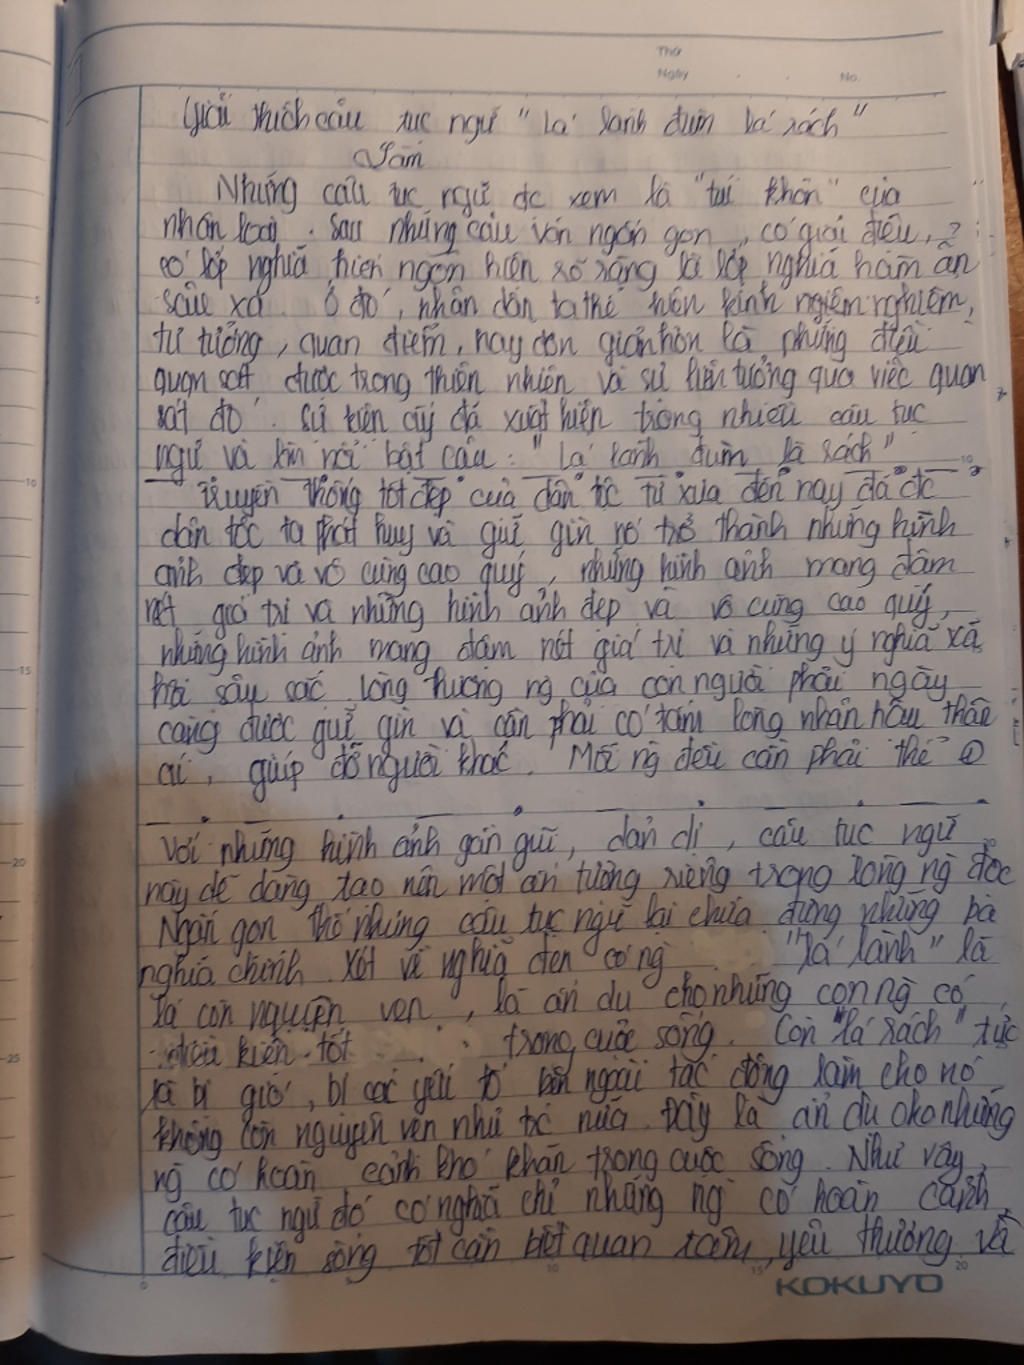 Thứ
Ngày . . No.
Giải thích câu tục ngữ "Lá lành đùm lá rách"
Làm
Những câu tục ngữ đc xem là "túi khôn" của
nhân loại. Sau những câu văn ngắn gọn, có giai điệu,
có lớp nghĩa hiển ngôn hiện rõ ràng là lớp nghĩa hàm ẩn
sâu xa. Ở đó, nhân dân ta thể hiện kinh ngiệm nghiệm,
tư tưởng, quan điểm, hay đơn giản hơn là những điều
quan sát được trong thiên nhiên và sự liên tưởng qua việc quan
sát đó. Sự kiện ấy đã xuất hiện trong nhiều câu tục
ngữ và nổi bật câu: "Lá lành đùm lá rách"
Truyền thống tốt đẹp của dân tộc từ xưa đến nay đã đc
dân tộc ta phát huy và giữ gìn nó trở thành những hình
ảnh đẹp và vô cùng cao quý, những hình ảnh mang đậm
nét giá trị và những hình ảnh đẹp và vô cùng cao quý,
những hình ảnh mang đậm nét giá trị và những ý nghĩa xã
hội sâu sắc. Lòng thương ng của con người phải ngày
càng được giữ gìn và cần phải có tấm lòng nhân hậu thân
ái, giúp đỡ người khác. Mỗi ng đều cần phải thế
Với những hình ảnh gần gũi, dản dị, câu tục ngữ
này dễ dàng tạo nên một ấn tượng riêng trong lòng ng đọc
Ngắn gọn thế nhưng câu tục ngữ lại chứa đựng những
nghĩa chính. Xét về nghĩa đen "lá lành" là
lá còn nguyên vẹn, là ẩn dụ cho những con ng có
điều kiện tốt trong cuộc sống. Còn "lá rách" tức
là bị gió, bị các yếu tố bên ngoài tác động làm cho nó
không còn nguyên vẹn như trc nữa. Đây là ẩn dụ cho những
ng có hoàn cảnh khó khăn trong cuộc sống. Như vậy,
câu tục ngữ đó có nghĩa chỉ những ng có hoàn cảnh,
điều kiện sống tốt cần biết quan tâm, yêu thương và
KOKUYO